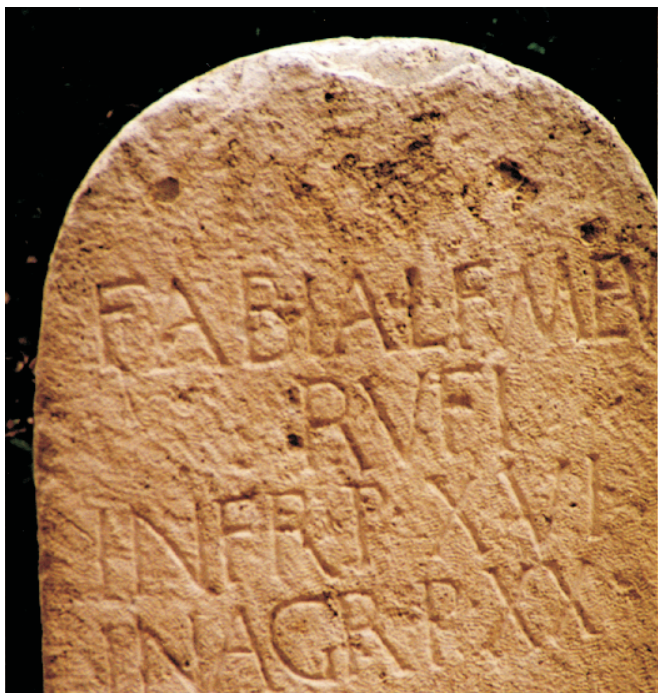 FABIALF·MEN
RVFI
INFR·P·XVI
INAGR·P·XX